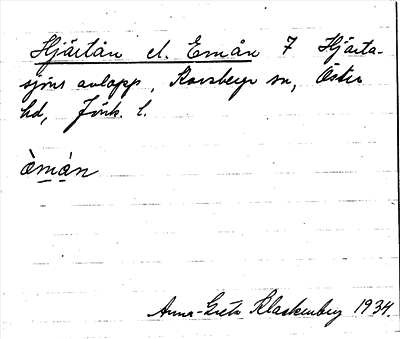 Hjärtån el. Emån 7 Hjärta-
sjöns avlopp, Korsberga sn, Östra
hd, Jönk. l.
òmàn
Anna-Greta Klackenberg 1934.